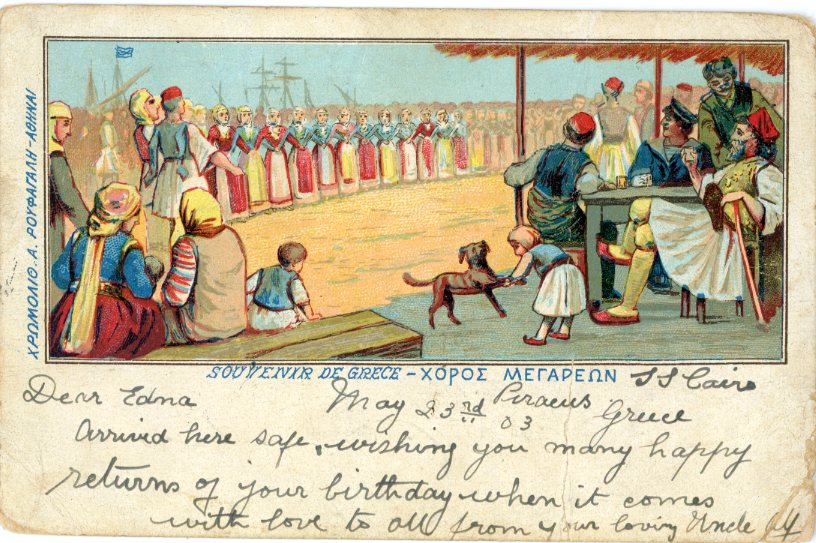 ΧΡΩΜΟΛΙΘ. Α. ΡΟΥΦΑΓΑΛΗ-ΑΘΗΝΑΙ
SOUVENIR DE GRECE - ΧΟΡΟΣ ΜΕΓΑΡΕΩΝ
SS Cairo
Dear Edna May 23rd 03 Piraeus Greece
Arrived here safe, wishing you many happy
returns of your birthday when it comes
with love to all from your loving Uncle